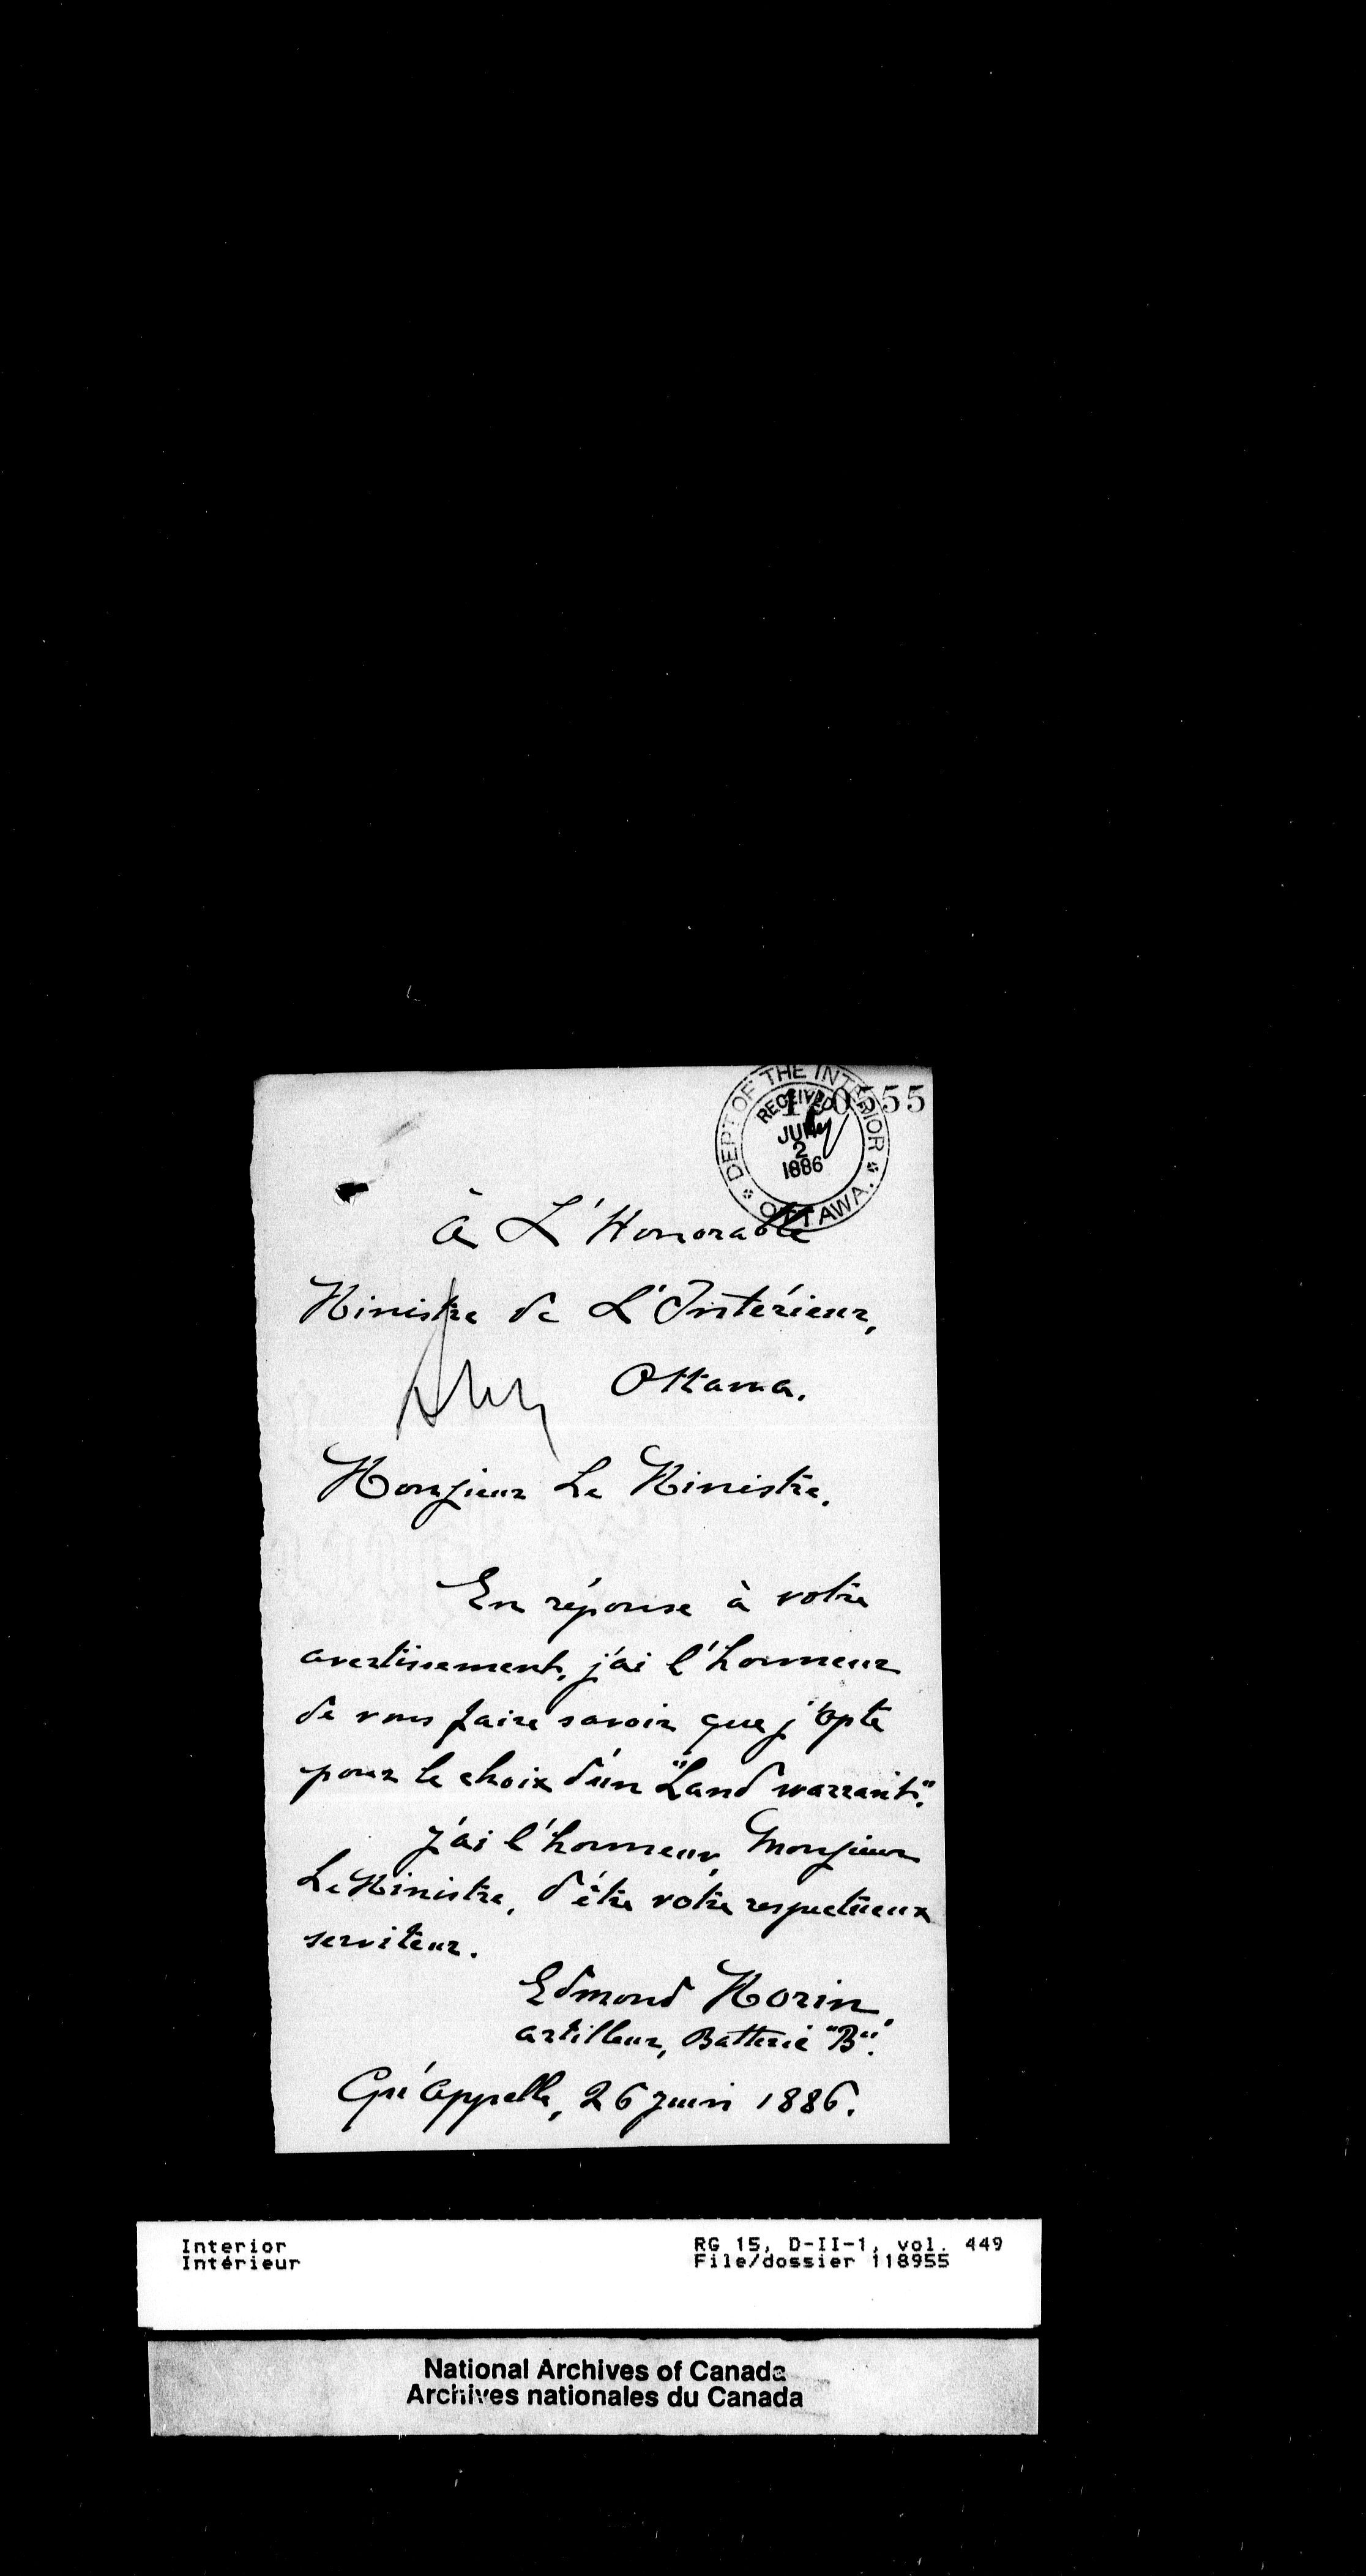 DEPT OF THE INTERIOR
RECEIVED
2
1886
OTTAWA.
à L'Honorable
Ministre de L'Intérieur,
Ottawa.
Monsieur Le Ministre.
En réponse à votre
avertissement, j'ai l'honneur
de vous faire savoir que j'opte
pour le choix d'un "Land warrant".
J'ai l'honneur, Monsieur
Le Ministre, d'être votre respectueux
serviteur.
Edmond Morin,
artilleur, Batterie "B".
Qu'Appelle, 26 juin 1886.
Interior
Intérieur
RG 15, D-II-1, vol. 449
File/dossier 118955
National Archives of Canada
Archives nationales du Canada